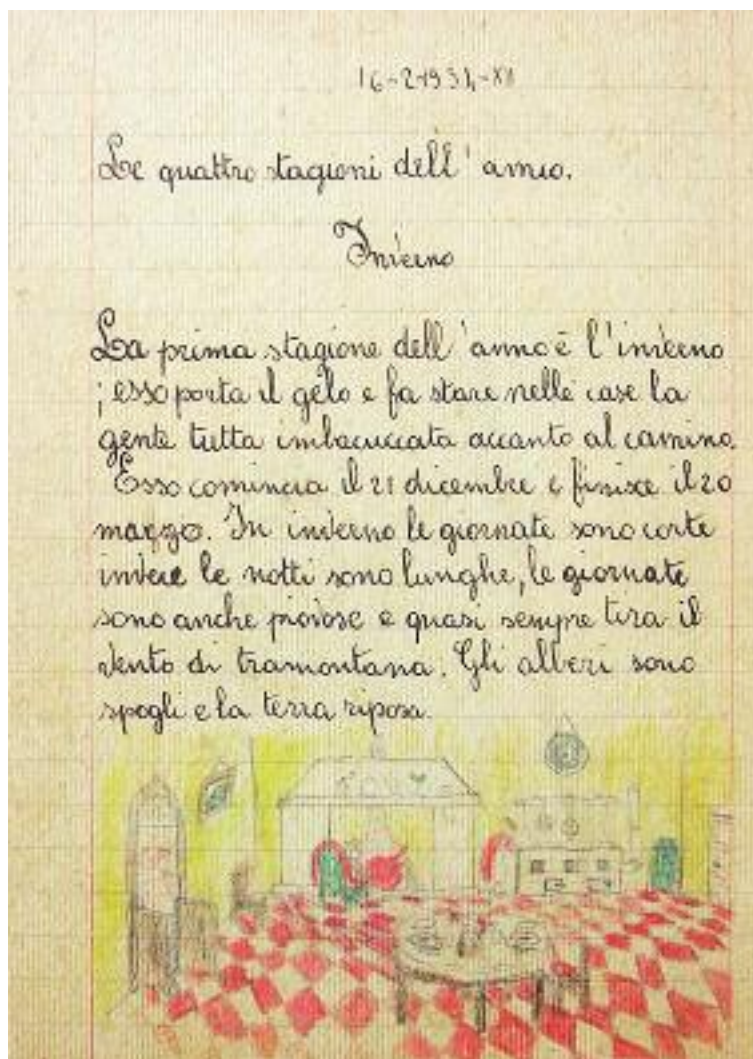 16-2-1934-XII
Le quattro stagioni dell' anno.
Inverno
La prima stagione dell'anno è l'inverno
; esso porta il gelo e fa stare nelle case la
gente tutta imbacuccata accanto al camino.
Esso comincia il 21 dicembre e finisce il 20
marzo. In inverno le giornate sono corte
invece le notti sono lunghe, le giornate
sono anche piovose e quasi sempre tira il
vento di tramontana. Gli alberi sono
spogli e la terra riposa.